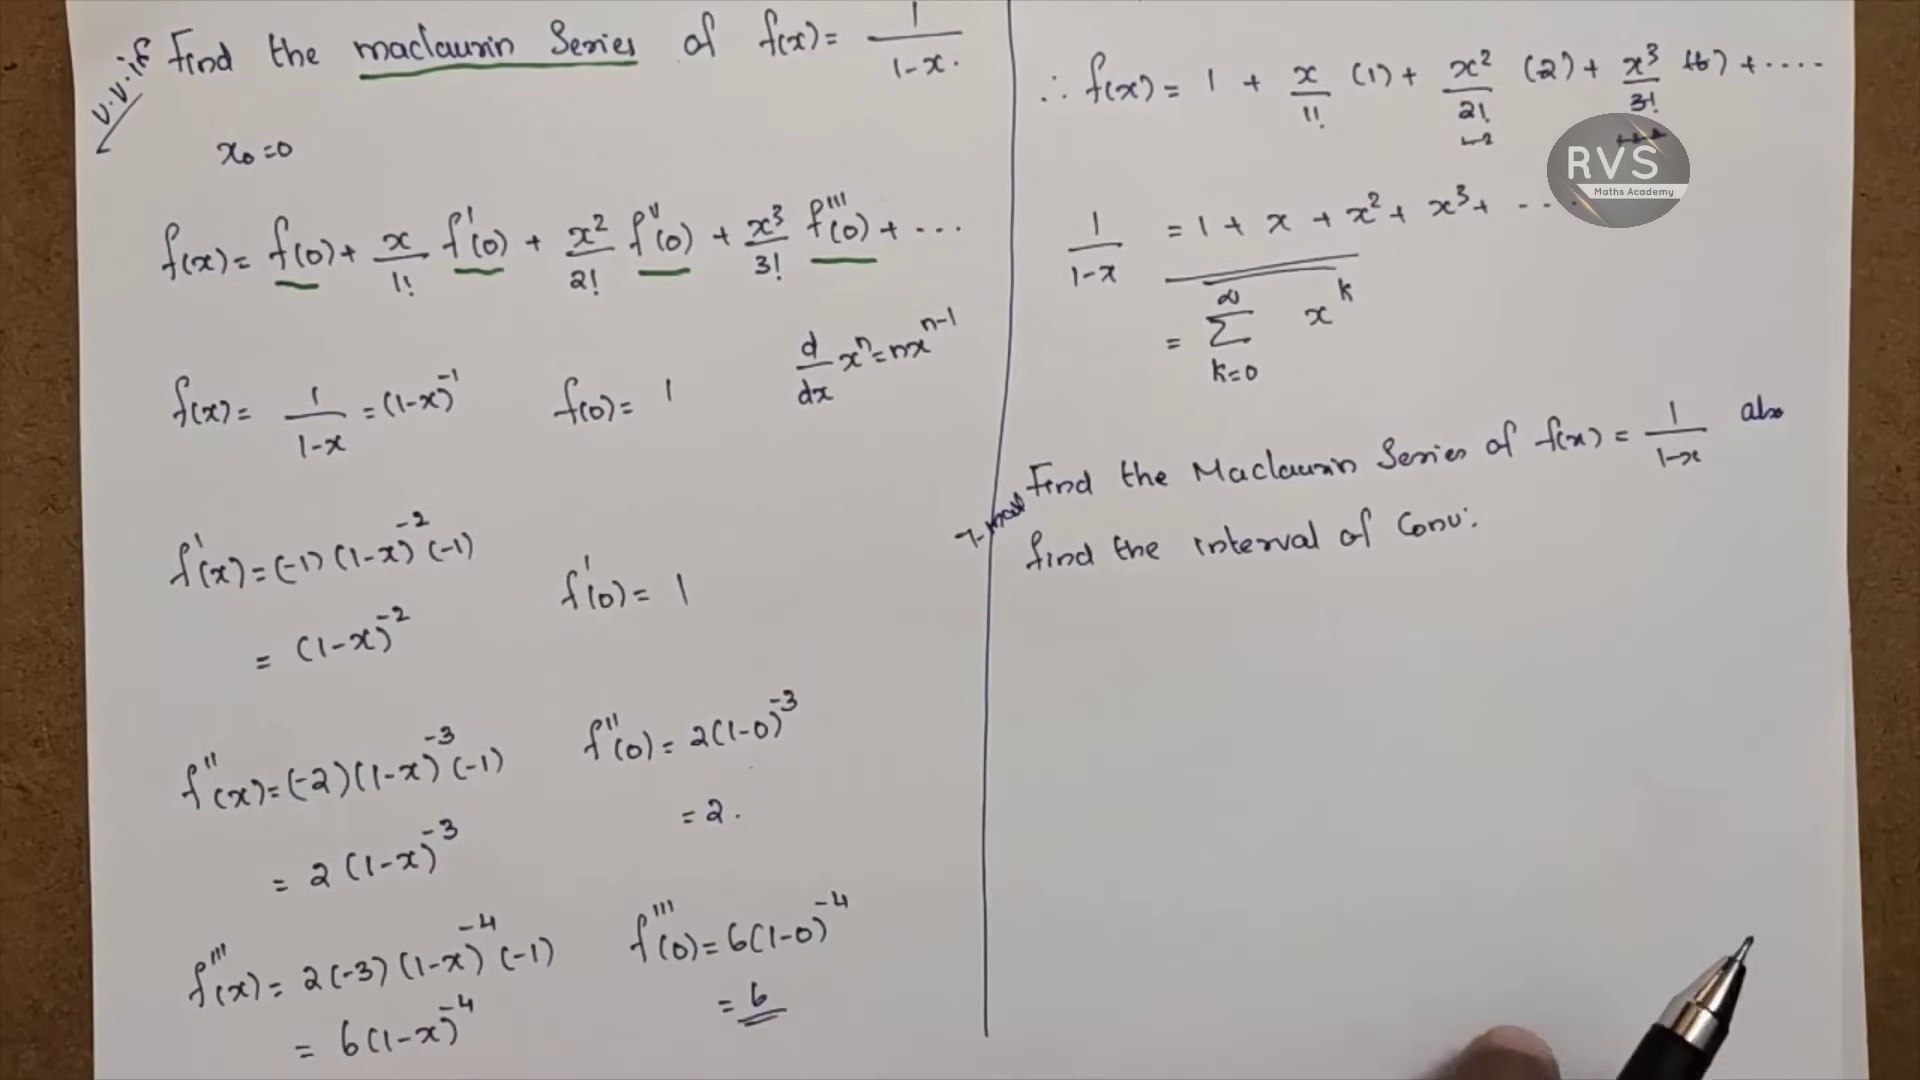 v.v.if Find the maclaurin Series of f(x) = 1/1-x.
x₀=0
f(x) = f(0) + x/1! f'(0) + x²/2! f''(0) + x³/3! f'''(0) + ...
f(x) = 1/1-x = (1-x)⁻¹ f(0) = 1 d/dx xⁿ = nxⁿ⁻¹
f'(x) = (-1) (1-x)⁻² (-1)
f'(0) = 1
= (1-x)⁻²
f''(x) = (-2) (1-x)⁻³ (-1) f''(0) = 2(1-0)⁻³
= 2.
= 2 (1-x)⁻³
f'''(x) = 2(-3) (1-x)⁻⁴ (-1) f'''(0) = 6(1-0)⁻⁴
= 6
= 6(1-x)⁻⁴
∴ f(x) = 1 + x/1! (1) + x²/2! (2) + x³/3! (6) + ....
RVS
Maths Academy
1/1-x = 1 + x + x² + x³ + ....
= ∞ Σ k=0 xᵏ
Find the Maclaurin Series of f(x) = 1/1-x also
find the interval of Conv: